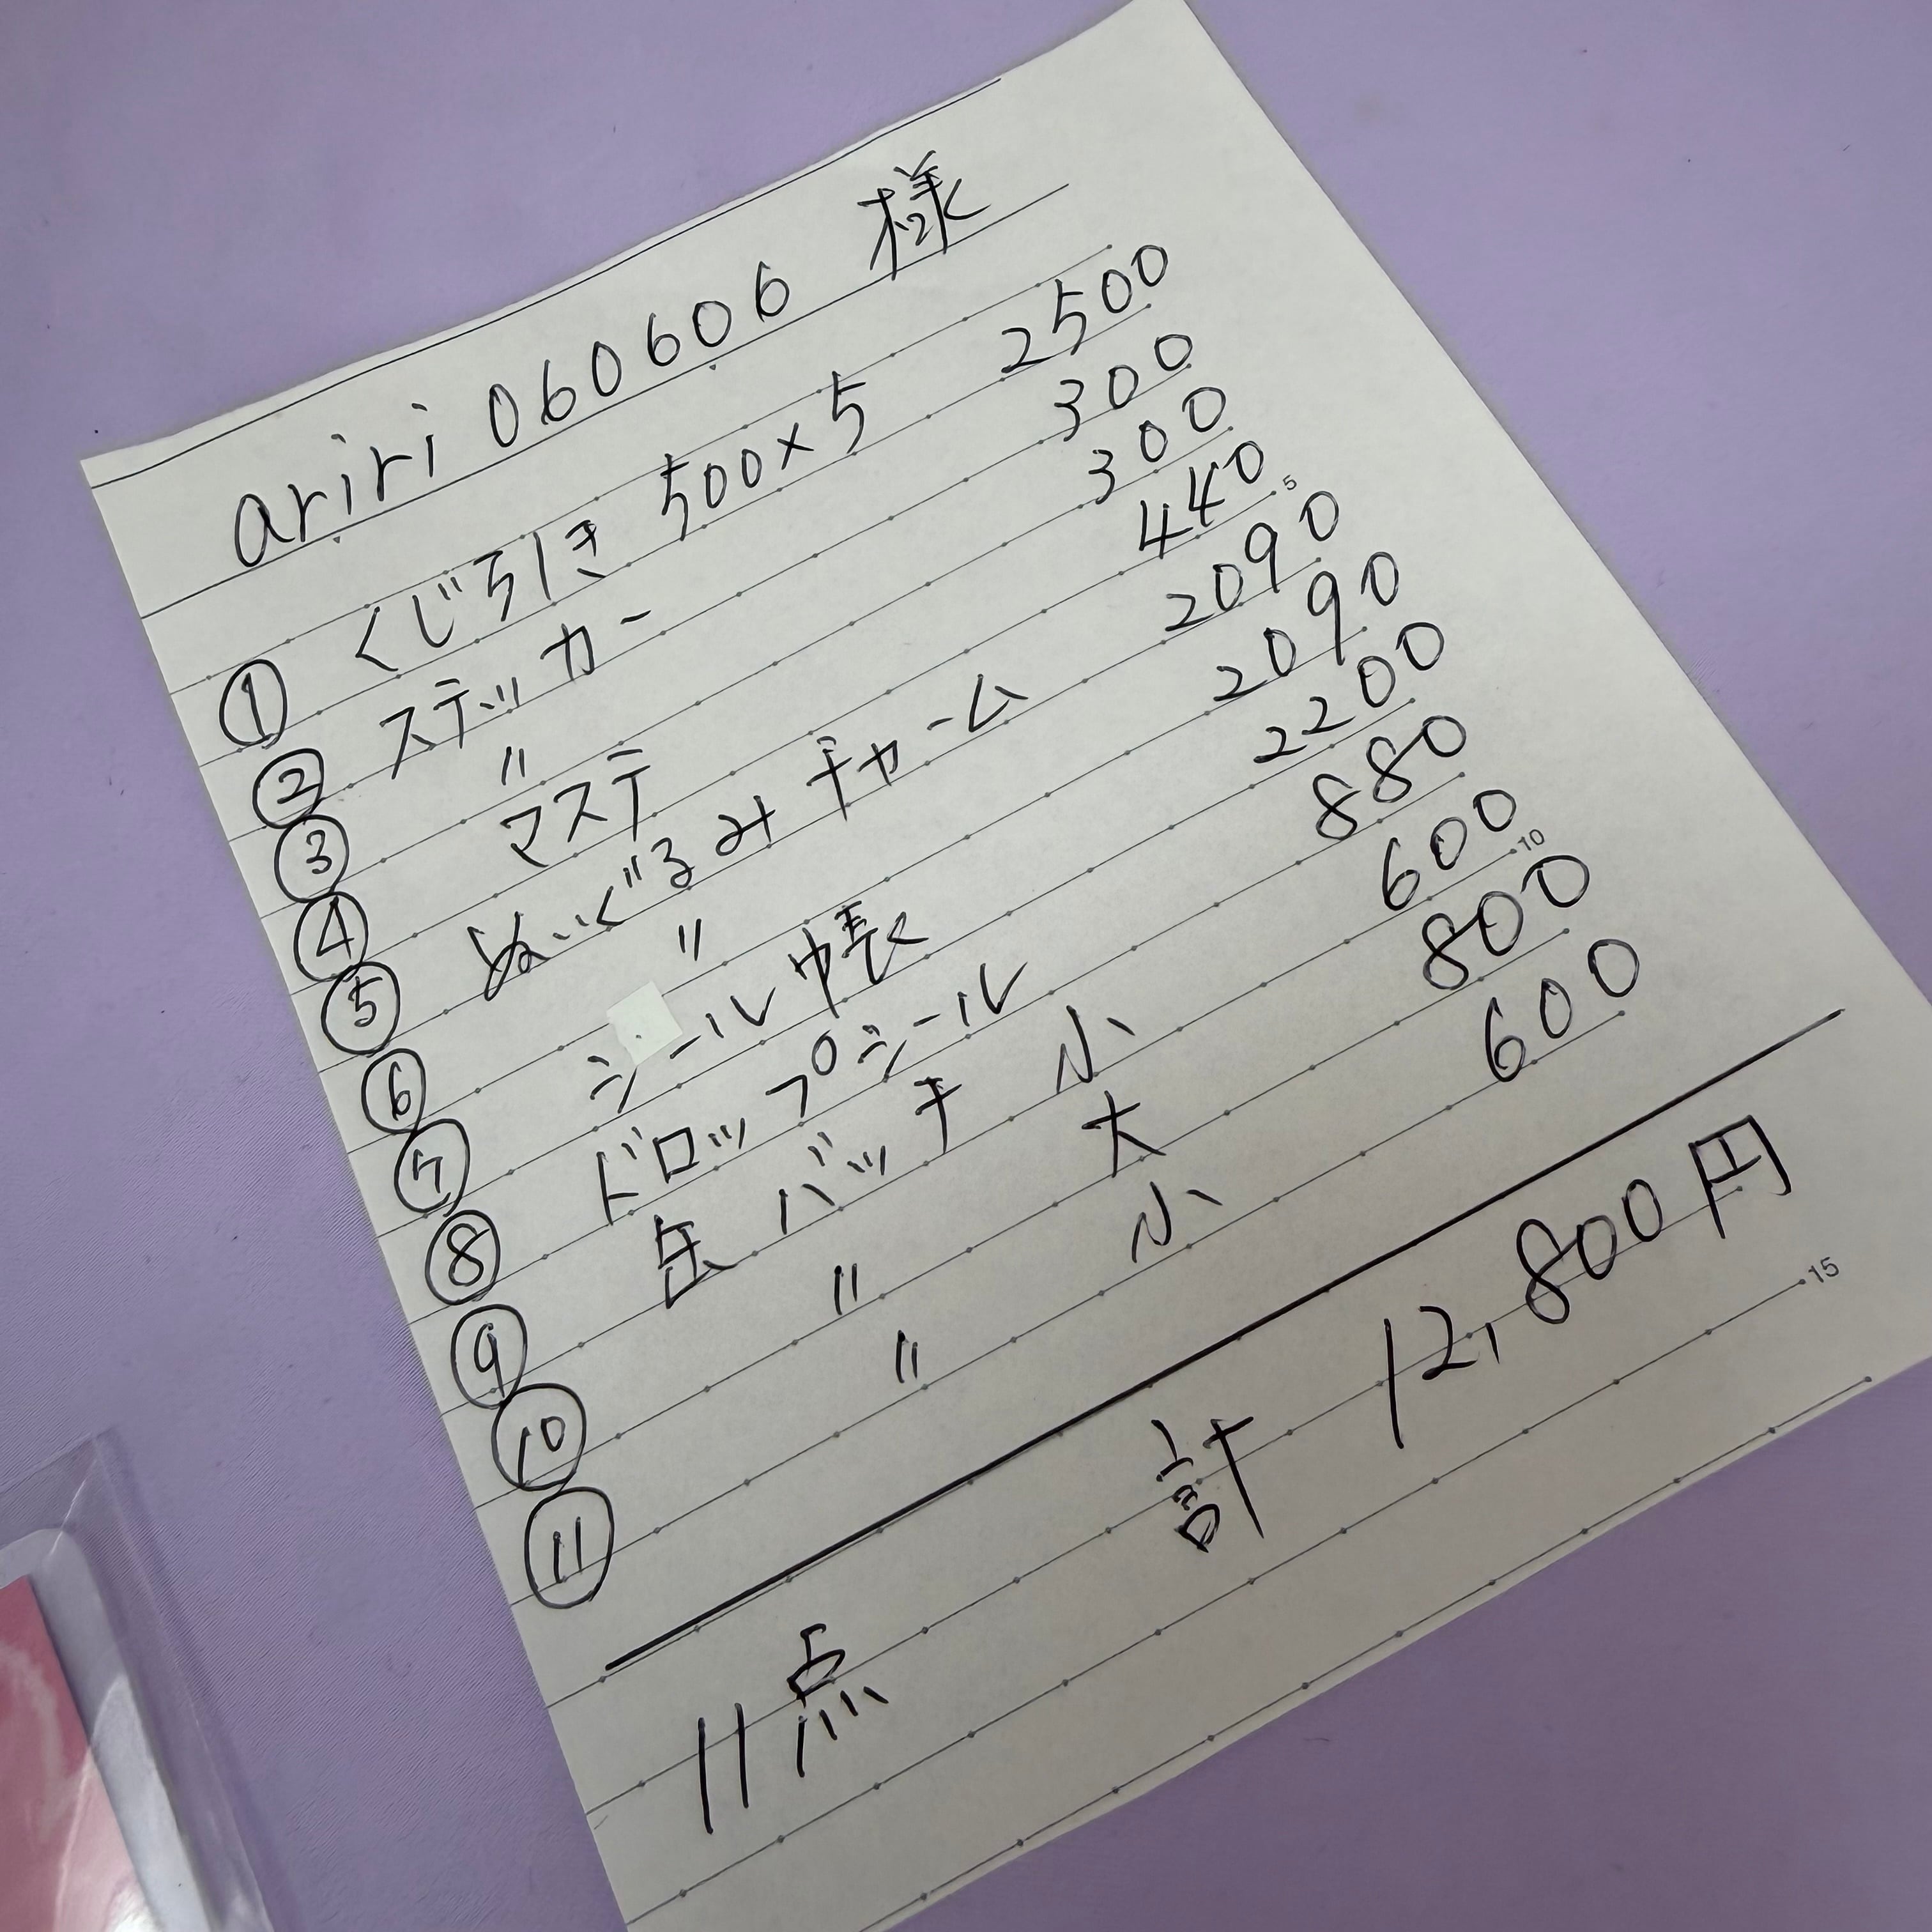 ariri060606 様
① くじ引き 500×5 2500
② ステッカー 300
③ 〃 300
④ マステ 440
⑤ ぬいぐるみチャーム 2090
⑥ 〃 2090
⑦ シール帳 2200
⑧ ドロップシール 880
⑨ 缶バッチ 小 600
⑩ 〃 大 800
⑪ 〃 小 600
11点 計 12,800円
5
10
15